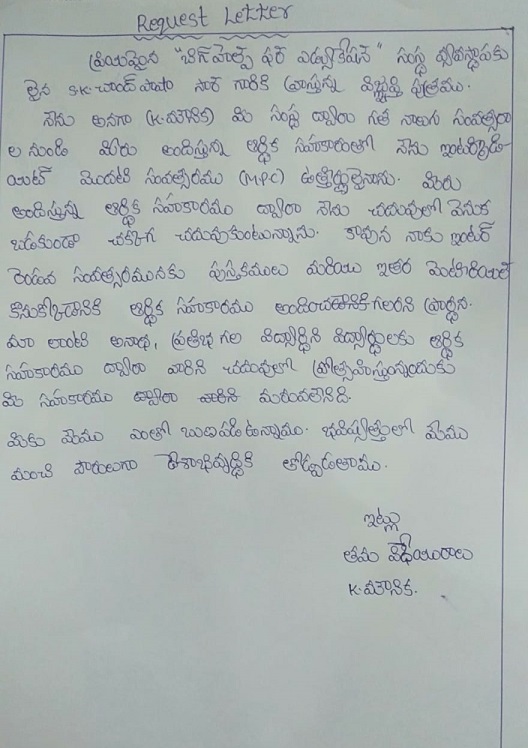 Request Letter
ప్రియమైన "బిగ్ హెల్ప్ ఫర్ ఎడ్యుకేషన్" సంస్థ వ్యవస్థాపకు
లైన S.K. చాంద్ పాషా సార్ గారికి వ్రాస్తున్న విజ్ఞప్తి పత్రము.
నేను అనగా (K. మౌనిక) మీ సంస్థ ద్వారా గత నాలుగు సంవత్సరా
ల నుండి మీరు అందిస్తున్న ఆర్థిక సహకారంతో నేను ఇంటర్మీడి
యెట్ మొదటి సంవత్సరము (M.P.C) ఉత్తీర్ణులైనాను. మీరు
అందిస్తున్న ఆర్థిక సహకారము ద్వారా నేను చదువులో వెనుక
బడకుండా చక్కగా చదువుకుంటున్నాను. కావున నాకు ఇంటర్
రెండవ సంవత్సరమునకు పుస్తకములు మరియు ఇతర మెటీరియల్
కొనుక్కోడానికి ఆర్థిక సహకారము అందించడానికిగలరని ప్రార్థన.
మా లాంటి అనాథ, ప్రతిభ గల విద్యార్థిని విద్యార్థులకు ఆర్థిక
సహకారము ద్వారా వారిని చదువులో ప్రోత్సహిస్తున్నందుకు
మీ సహకారము ద్వారా వారిని మరువలేనిది.
మీకు మేము ఎంతో ఋణపడి ఉన్నాము. భవిష్యత్తులో మేము
మంచి పౌరులుగా దేశాభివృద్ధికి తోడ్పడతాము.
ఇట్లు
తమ విధేయురాలు
K. మౌనిక.